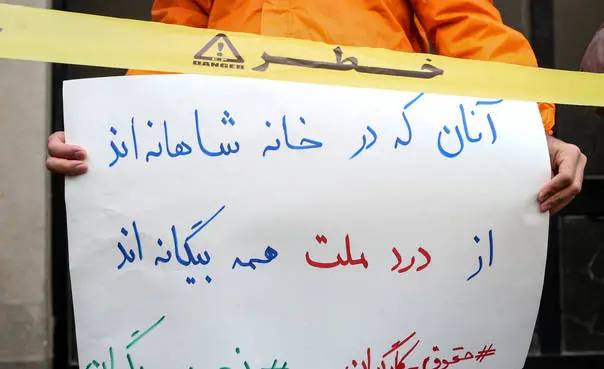 خطر
DANGER
آنان که در خانه شاهانه‌اند
از درد ملت همه بیگانه‌اند
#حقوق_کارگران